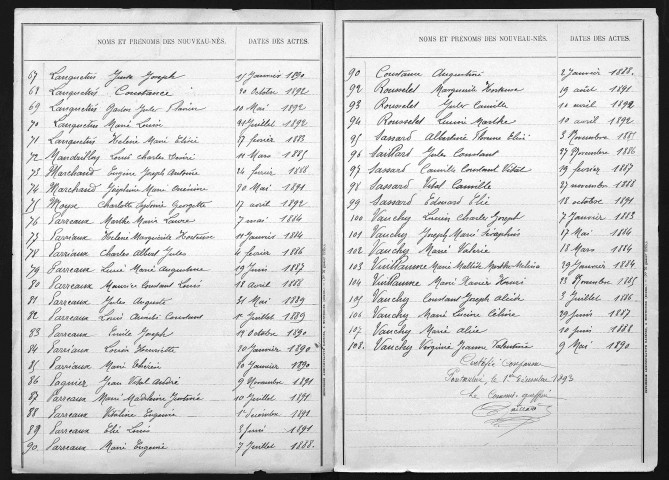 NOMS ET PRÉNOMS DES NOUVEAU-NÉS. DATES DES ACTES.
67 Languetin Joseph Janvier 1890
68 Languetin Constance 20 Octobre 1892
69 Languetin Gaston Jules 10 Mai 1892
70 Languetin Marie Louise Juillet 1892
71 Languetin Hélène Marie 17 février 1883
72 Louis Charles 11 Mars 1885
73 Marchand Eugène Joseph Antoine 24 février 1888
74 Marchand Joséphine Marie 20 Mai 1891
75 Charlotte Georgette 2 avril 1892
76 Parreaux Marthe Marie Laure 7 mai 1884
77 Parreaux Hélène Marguerite Hortense Janvier 1884
78 Parriaux Charles Albert Jules 4 février 1886
79 Parreaux Marie Augustine 19 Juin 1887
80 Parreaux Maurice Constant Louis 18 avril 1888
81 Parreaux Jules Auguste 31 Mai 1889
82 Parreaux Louis Constant Juillet 1889
83 Parreaux Emile Joseph Octobre 1890
84 Parreaux Henriette 30 Janvier 1890
85 Parreaux Marie Janvier 1890
86 Jean Vital André 9 Novembre 1891
87 Parreaux Marie Madeleine 10 Juillet 1891
88 Parreaux Eugénie Décembre 1891
89 Parreaux Elie Louis 1891
90 Parreaux Marie Eugénie 7 Juillet 1888.
NOMS ET PRÉNOMS DES NOUVEAU-NÉS. DATES DES ACTES.
90 Augustine 2 Janvier 1888.
92 Rousselet Marguerite Hortense 19 août 1891
93 Rousselet Jules Camille avril 1892
94 Rousselet Marthe 10 avril 1892
95 Sassard 3 Novembre 1885
96 Saillard Jules Constant 27 Novembre 1886
97 Sassard Camille Constant Vital 19 février 1887
98 Sassard Vital Camille 27 novembre 1888
99 Sassard Edouard Elie 18 octobre 1891
100 Vauchy Lucien Charles Joseph 7 Janvier 1883
101 Vauchy Joseph Marie Séraphin 17 Mai 1884
102 Vauchy Marie Valérie 18 Mars 1884
103 Vuillaume Marie Marthe 29 Janvier 1884
104 Vuillaume Marie Xavier Henri 23 Novembre 1885
105 Vauchy Constant Joseph 3 Juillet 1886
106 Vauchy Marie Lucine 29 Juin 1887
107 Vauchy Marie Alice 10 juin 1888
108. Vauchy Virginie Jeanne Valentine 9 Mai 1890
Certifié conforme
le 1er Décembre 1893
Le Commis-greffier